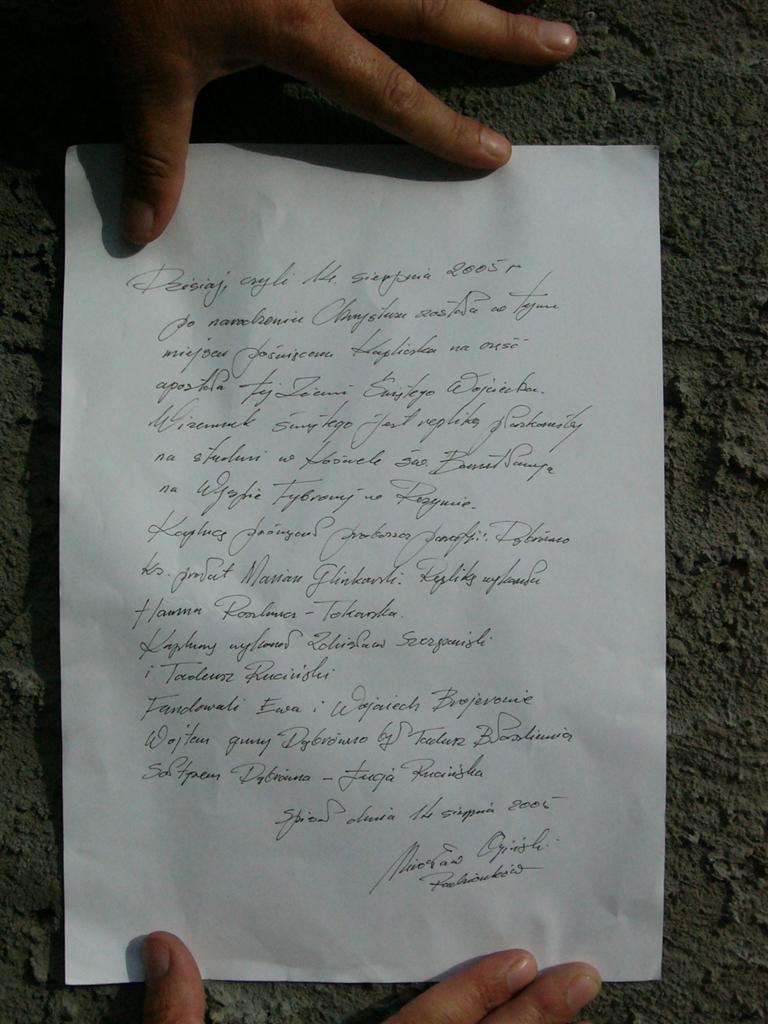 Dzisiaj, czyli 14. sierpnia 2005 r
po narodzeniu Chrystusa została w tym
miejscu poświęcona Kapliczka na cześć
apostoła tej Ziemi Świętego Wojciecha.
Wizerunek świętego jest repliką płaskorzeźby
na studni w Kościele św. Bartłomieja
na Wyspie Tybrowej w Rzymie.
Kaplicę poświęcił proboszcz parafii: Dąbrówno
ks. prałat Marian Glinkowski. Replikę wykonała
Hanna - Tokarska.
Kaplicę wykonał Zdzisław Szczepański
i Tadeusz Ruciński.
Fundowali Ewa i Wojciech
Wójtem gminy Dąbrówno był Tadeusz
Sołtysem Dąbrówna - Łucja Rucińska
Spisał dnia 14 sierpnia 2005
Mirosław